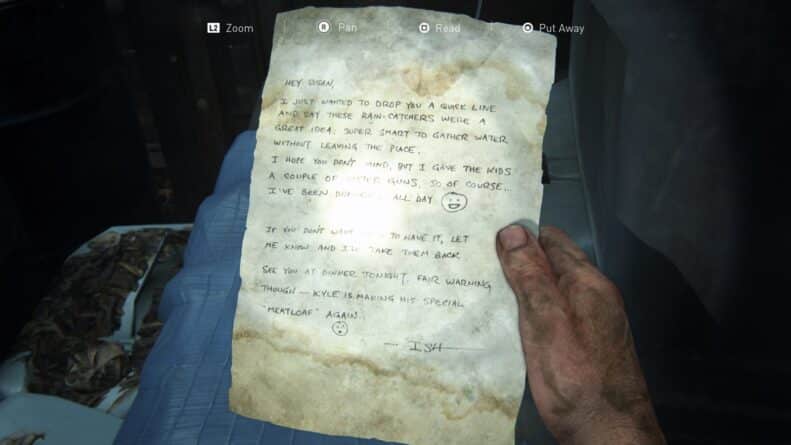 L2 Zoom R Pan Read Put Away
HEY SUSAN,
I JUST WANTED TO DROP YOU A QUICK LINE
AND SAY THESE RAIN-CATCHERS WERE A
GREAT IDEA. SUPER SMART TO GATHER WATER
WITHOUT LEAVING THE PLACE.
I HOPE YOU DON'T MIND, BUT I GAVE THE KIDS
A COUPLE OF WATER GUNS, SO OF COURSE...
I'VE BEEN ALL DAY
IF YOU DON'T WANT TO HAVE IT, LET
ME KNOW AND I'LL TAKE THEM BACK
SEE YOU AT DINNER TONIGHT, FAIR WARNING
THOUGH — KYLE IS MAKING HIS SPECIAL
"MEATLOAF" AGAIN..
— ISH